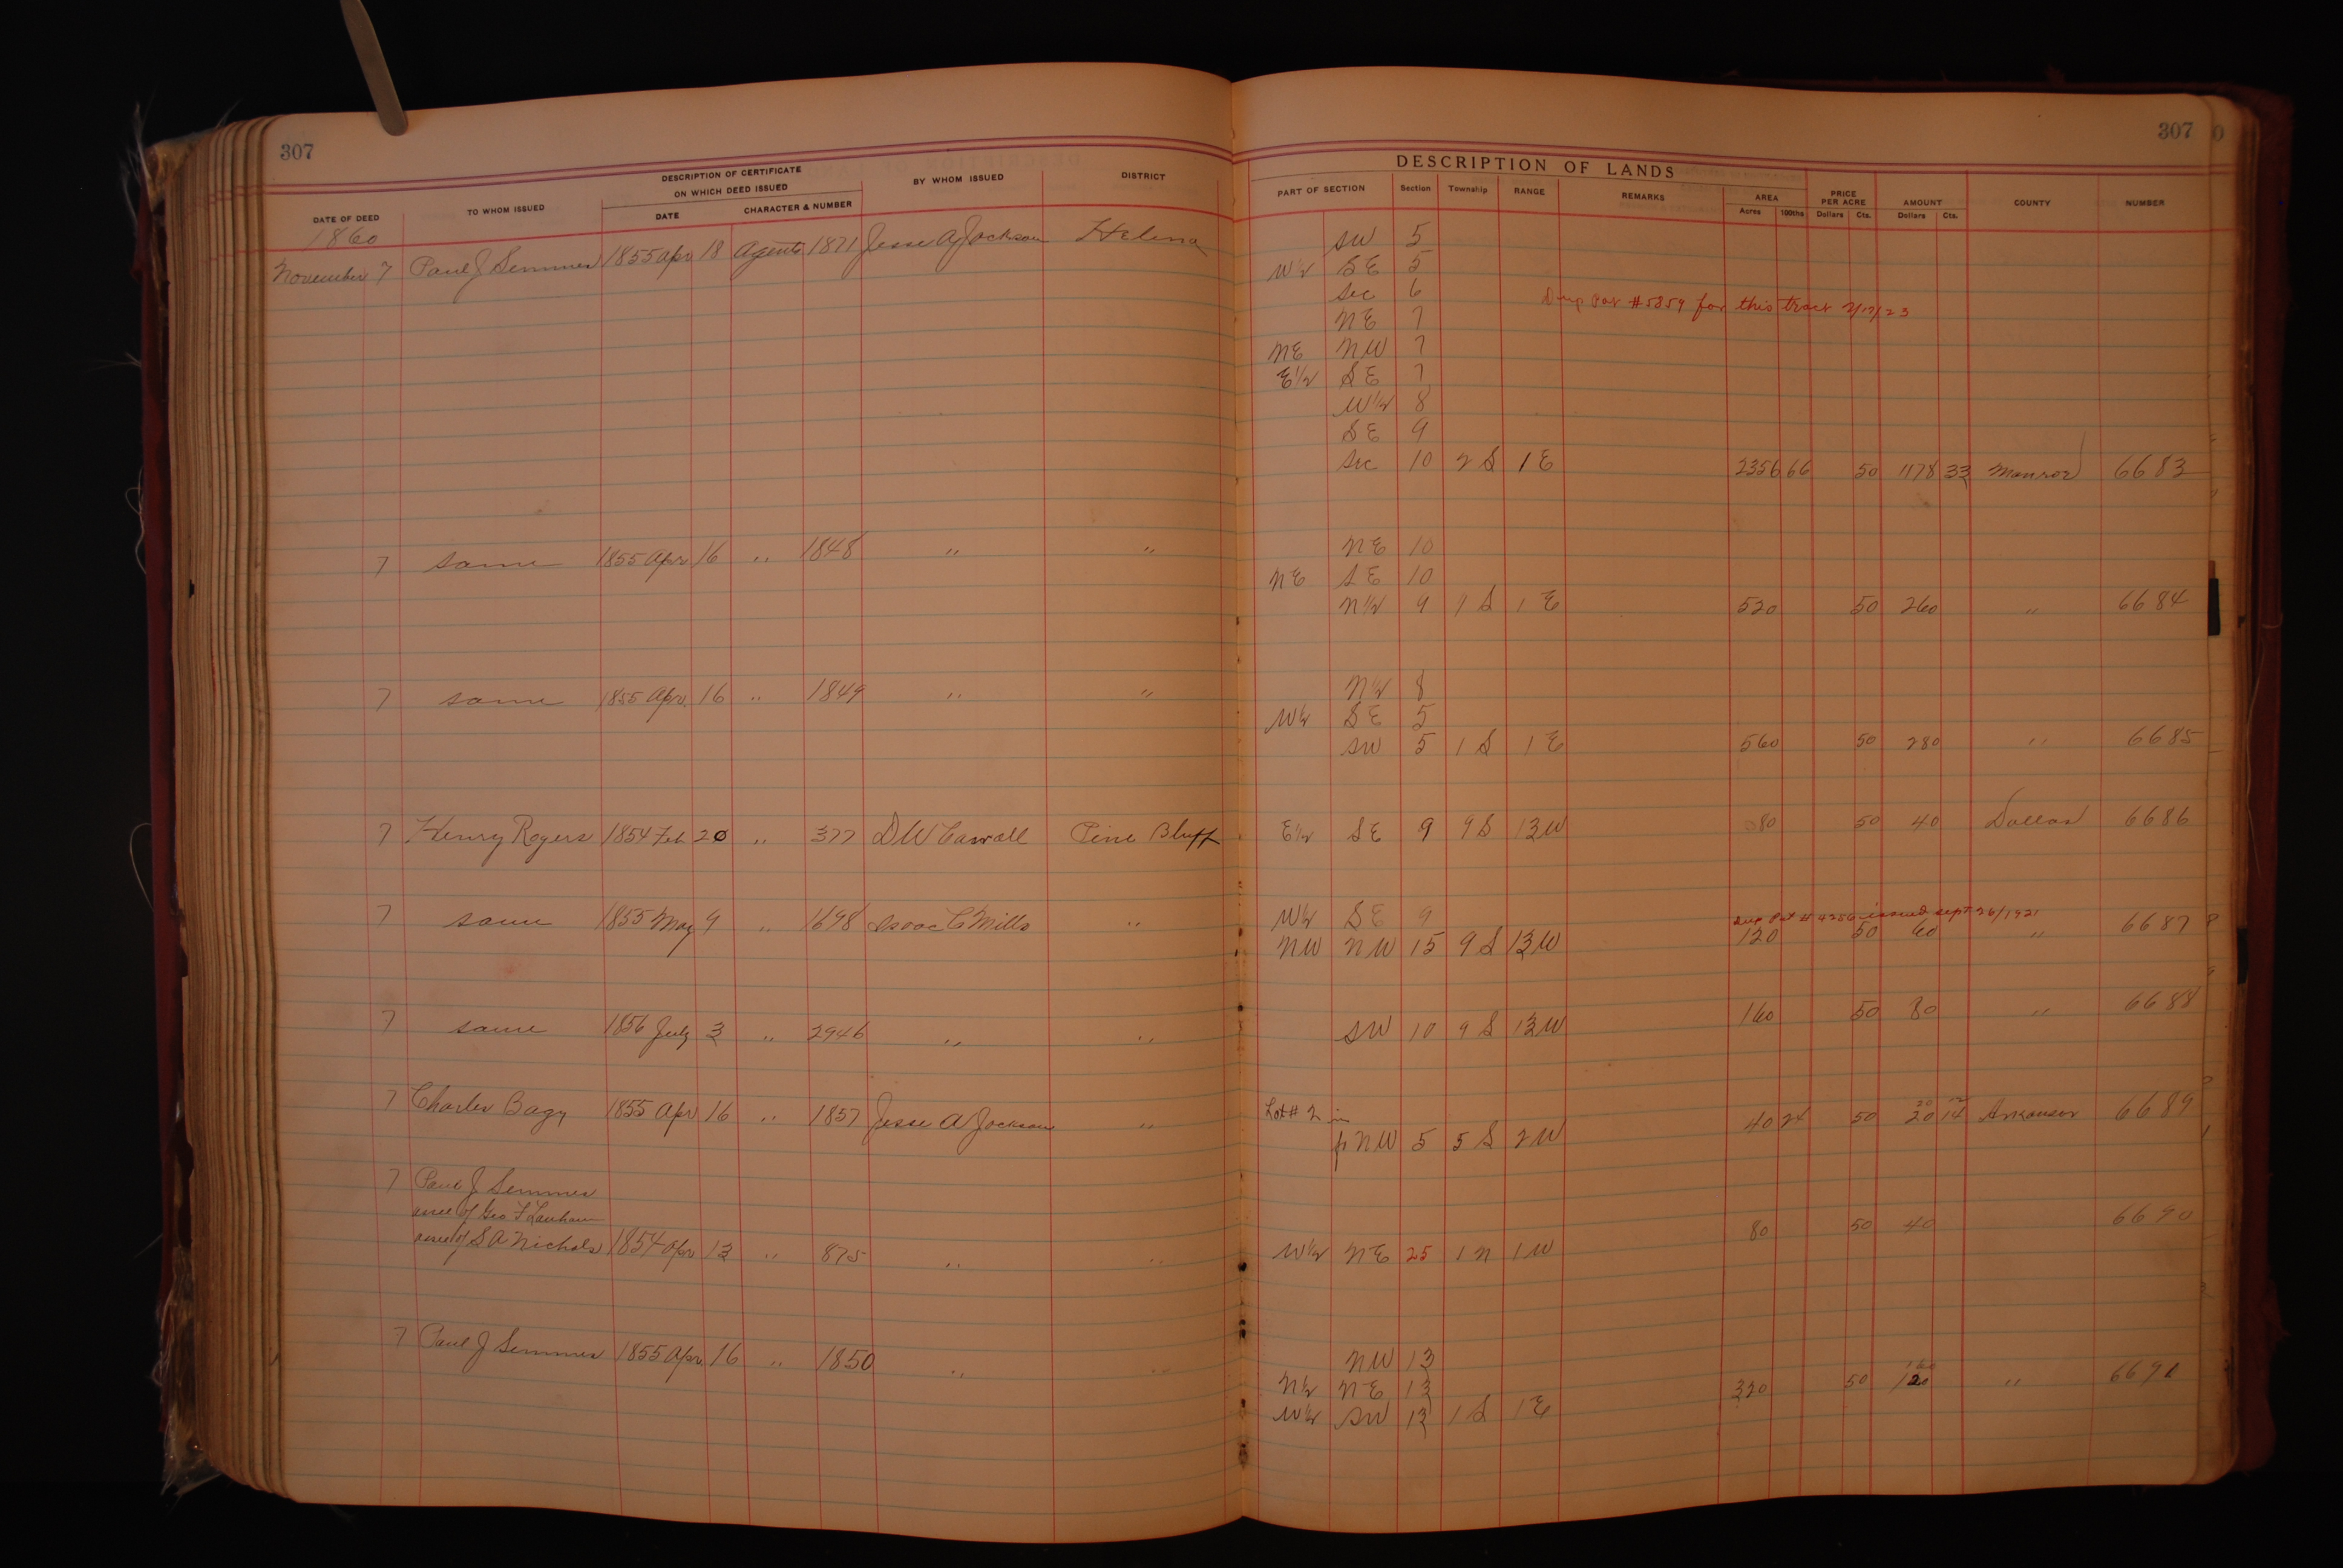 307
DESCRIPTION OF CERTIFICATE
ON WHICH DEED ISSUED
DATE OF DEED TO WHOM ISSUED DATE CHARACTER & NUMBER BY WHOM ISSUED DISTRICT
1860
November 7 Paul J Semmes 1855 Apr 18 Agents 1871 Jesse A Jackson Helena
7 same 1855 Apr 16 " 1848 " "
7 same 1855 Apr. 16 " 1849 " "
7 Henry Rogers 1854 Feb 20 " 377 D W Carroll Pine Bluff
7 same 1855 May 9 " 1698 Isaac C Mills "
7 same 1856 July 3 " 2946 " "
7 Charles Bagy 1855 Apr 16 " 1857 Jesse A Jackson "
7 Paul J Semmes
of Geo F Lanham
of S A Nichols 1854 Apr 13 " 875 " "
7 Paul J Semmes 1855 Apr. 16 " 1850 " "
307
DESCRIPTION OF LANDS
PART OF SECTION Section Township RANGE REMARKS AREA Acres 100ths PRICE PER ACRE Dollars Cts. AMOUNT Dollars Cts. COUNTY NUMBER
SW 5
W½ SE 5
Sec 6
Dup Pat #5859 for this tract 2/17/23
NE 7
NE NW 7
E½ SE 7
W½ 8
SE 9
Sec 10 2 S 1 E 2356 66 50 1178 33 Monroe 6683
NE 10
NE SE 10
N½ 9 9 S 1 E 520 50 260 " 6684
N½ 8
W½ SE 5
SW 5 1 S 1 E 560 50 280 " 6685
E½ SE 9 9 S 13 W 80 50 40 Dallas 6686
W½ SE 9
Dup Pat # 4256 issued Sept 26/1921
NW NW 15 9 S 13 W 120 50 60 " 6687
SW 10 9 S 13 W 160 50 80 " 6688
Lot # 2 in
20 12
fr NW 5 5 S 2 W 40 24 50 20 14 Arkansas 6689
W½ NE 25 1 N 1 W 80 50 40 6690
NW 13
160
N½ NE 13 320 50 120 " 6691
W½ SW 13 1 S 1 E